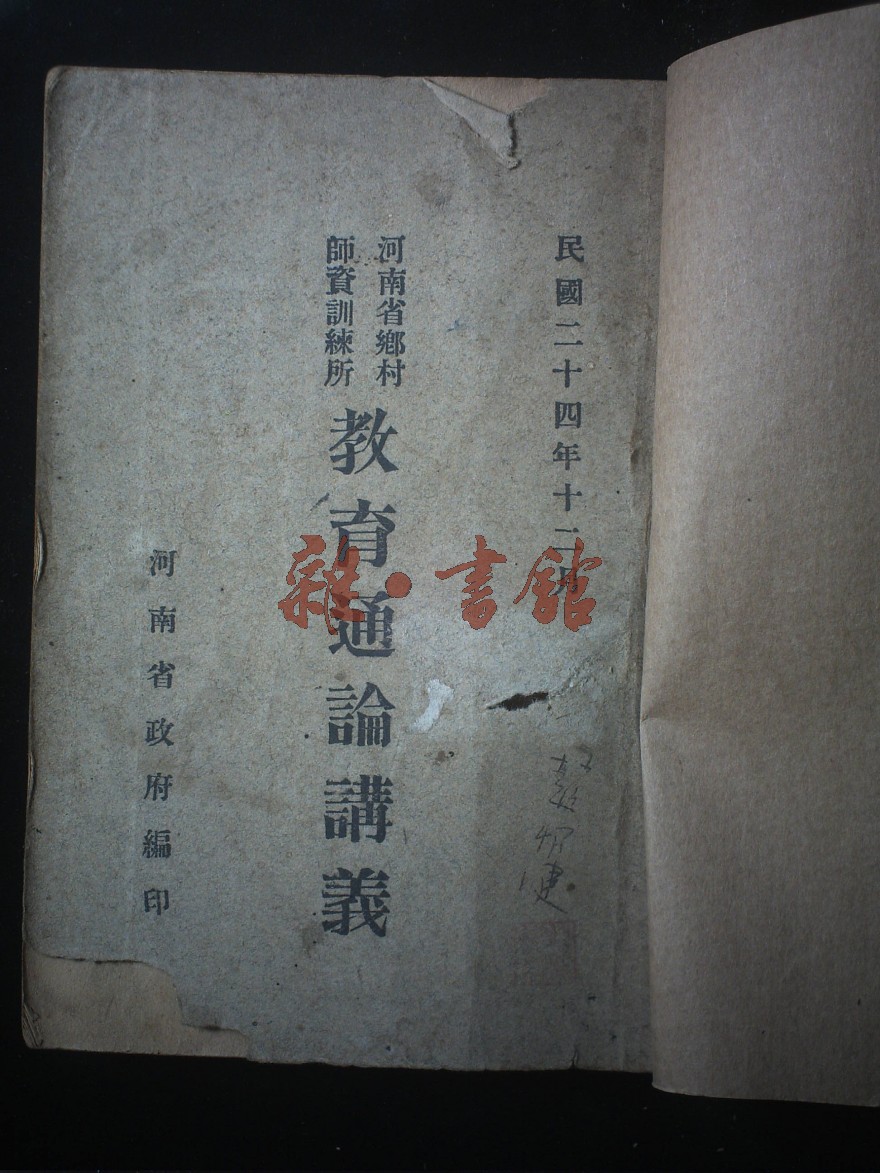 民國二十四年十二月
河南省鄉村
師資訓練所
教育通論講義
河南省政府編印
雜·書館